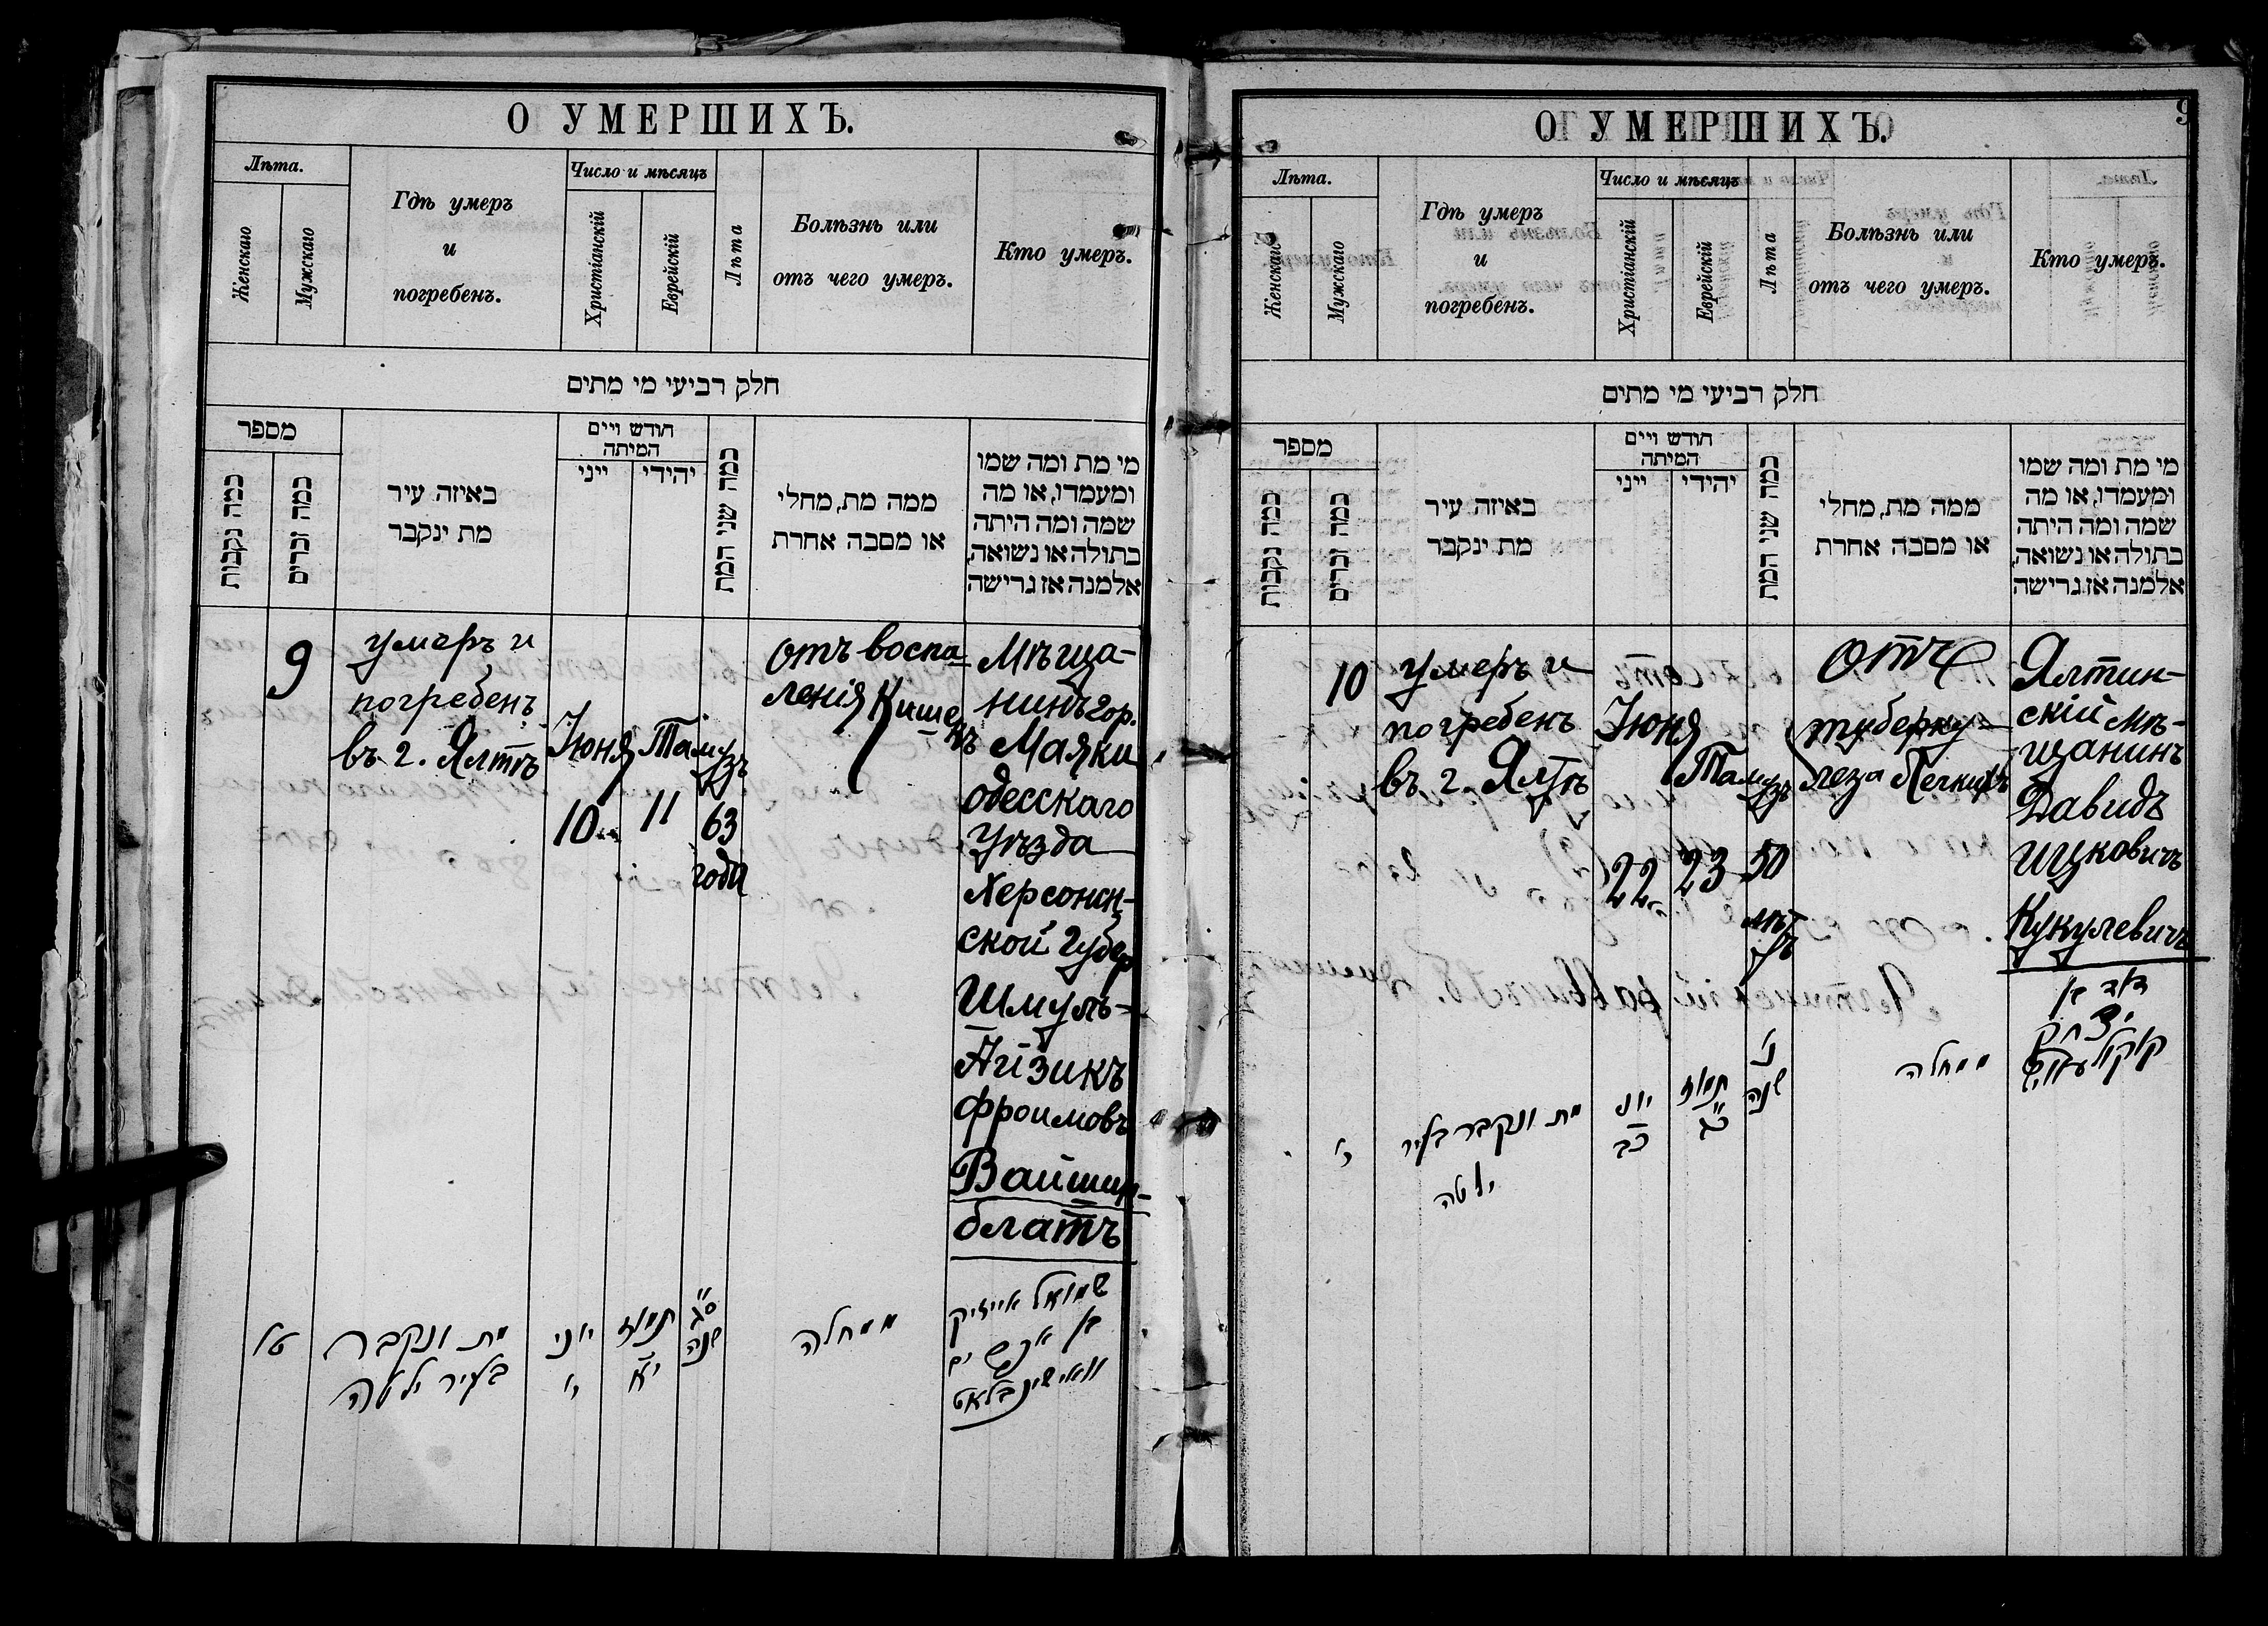 О УМЕРШИХЪ.
Лѣта.
Женскаго
Мужскаго
Гдѣ умеръ
и
погребенъ.
Число и мѣсяцъ
Христіанскій
Еврейскій
Лѣта
Болѣзнь или
отъ чего умеръ.
Кто умеръ.
חלק רביעי מי מתים
מספר
כמה נקבות
כמה זכרים
באיזה עיר
מת ינקבר
חודש ויים
המיתה
ייני
יהידי
כמה שני המת
ממה מת, מחלי
או מסבה אחרת
מי מת ומה שמו
ומעמדו, או מה
שמה ומה היתה
בתולה או נשואה,
אלמנה אז גרישה
9
умеръ и
погребенъ
въ г. Ялтѣ
Іюня
10
Тамузъ
11
63
года
отъ воспа
ленія Кишекъ
Мѣща-
нинъ гор.
Маяки
одесскаго
Уѣзда
Херсонн-
ской Губер
Шмуль-
Айзикъ
Фроимовъ
Вайшин-
блатъ
טי
מת ונקבר
בעיר ילטה
יוני
י
תמוז
יא
ס״ג
שנה
ממחלה
שמואל אייזיק
בן אפרים
וואישינבלאט
О УМЕРШИХЪ.
9
Лѣта.
Женскаго
Мужскаго
Гдѣ умеръ
и
погребенъ.
Число и мѣсяцъ
Христіанскій
Еврейскій
Лѣта
Болѣзнь или
отъ чего умеръ.
Кто умеръ.
חלק רביעי מי מתים
מספר
כמה נקבות
כמה זכרים
באיזה עיר
מת ינקבר
חודש ויים
המיתה
ייני
יהידי
כמה שני המת
ממה מת, מחלי
או מסבה אחרת
מי מת ומה שמו
ומעמדו, או מה
שמה ומה היתה
בתולה או נשואה,
אלמנה אז גרישה
10
умеръ и
погребенъ
въ г. Ялтѣ
Іюня
22
Тамузъ
23
50
лѣтъ
Отъ
туберку-
леза Легкихъ
Ялтин-
скій Мѣ-
щанинъ
Давидъ
Ицковичъ
Кукулевичъ
י
מת ונקבר בעיר
ילטה
יוני
כב
תמוז
כ״ג
נ׳
שנה
ממחלה
דוד בן
יצחק